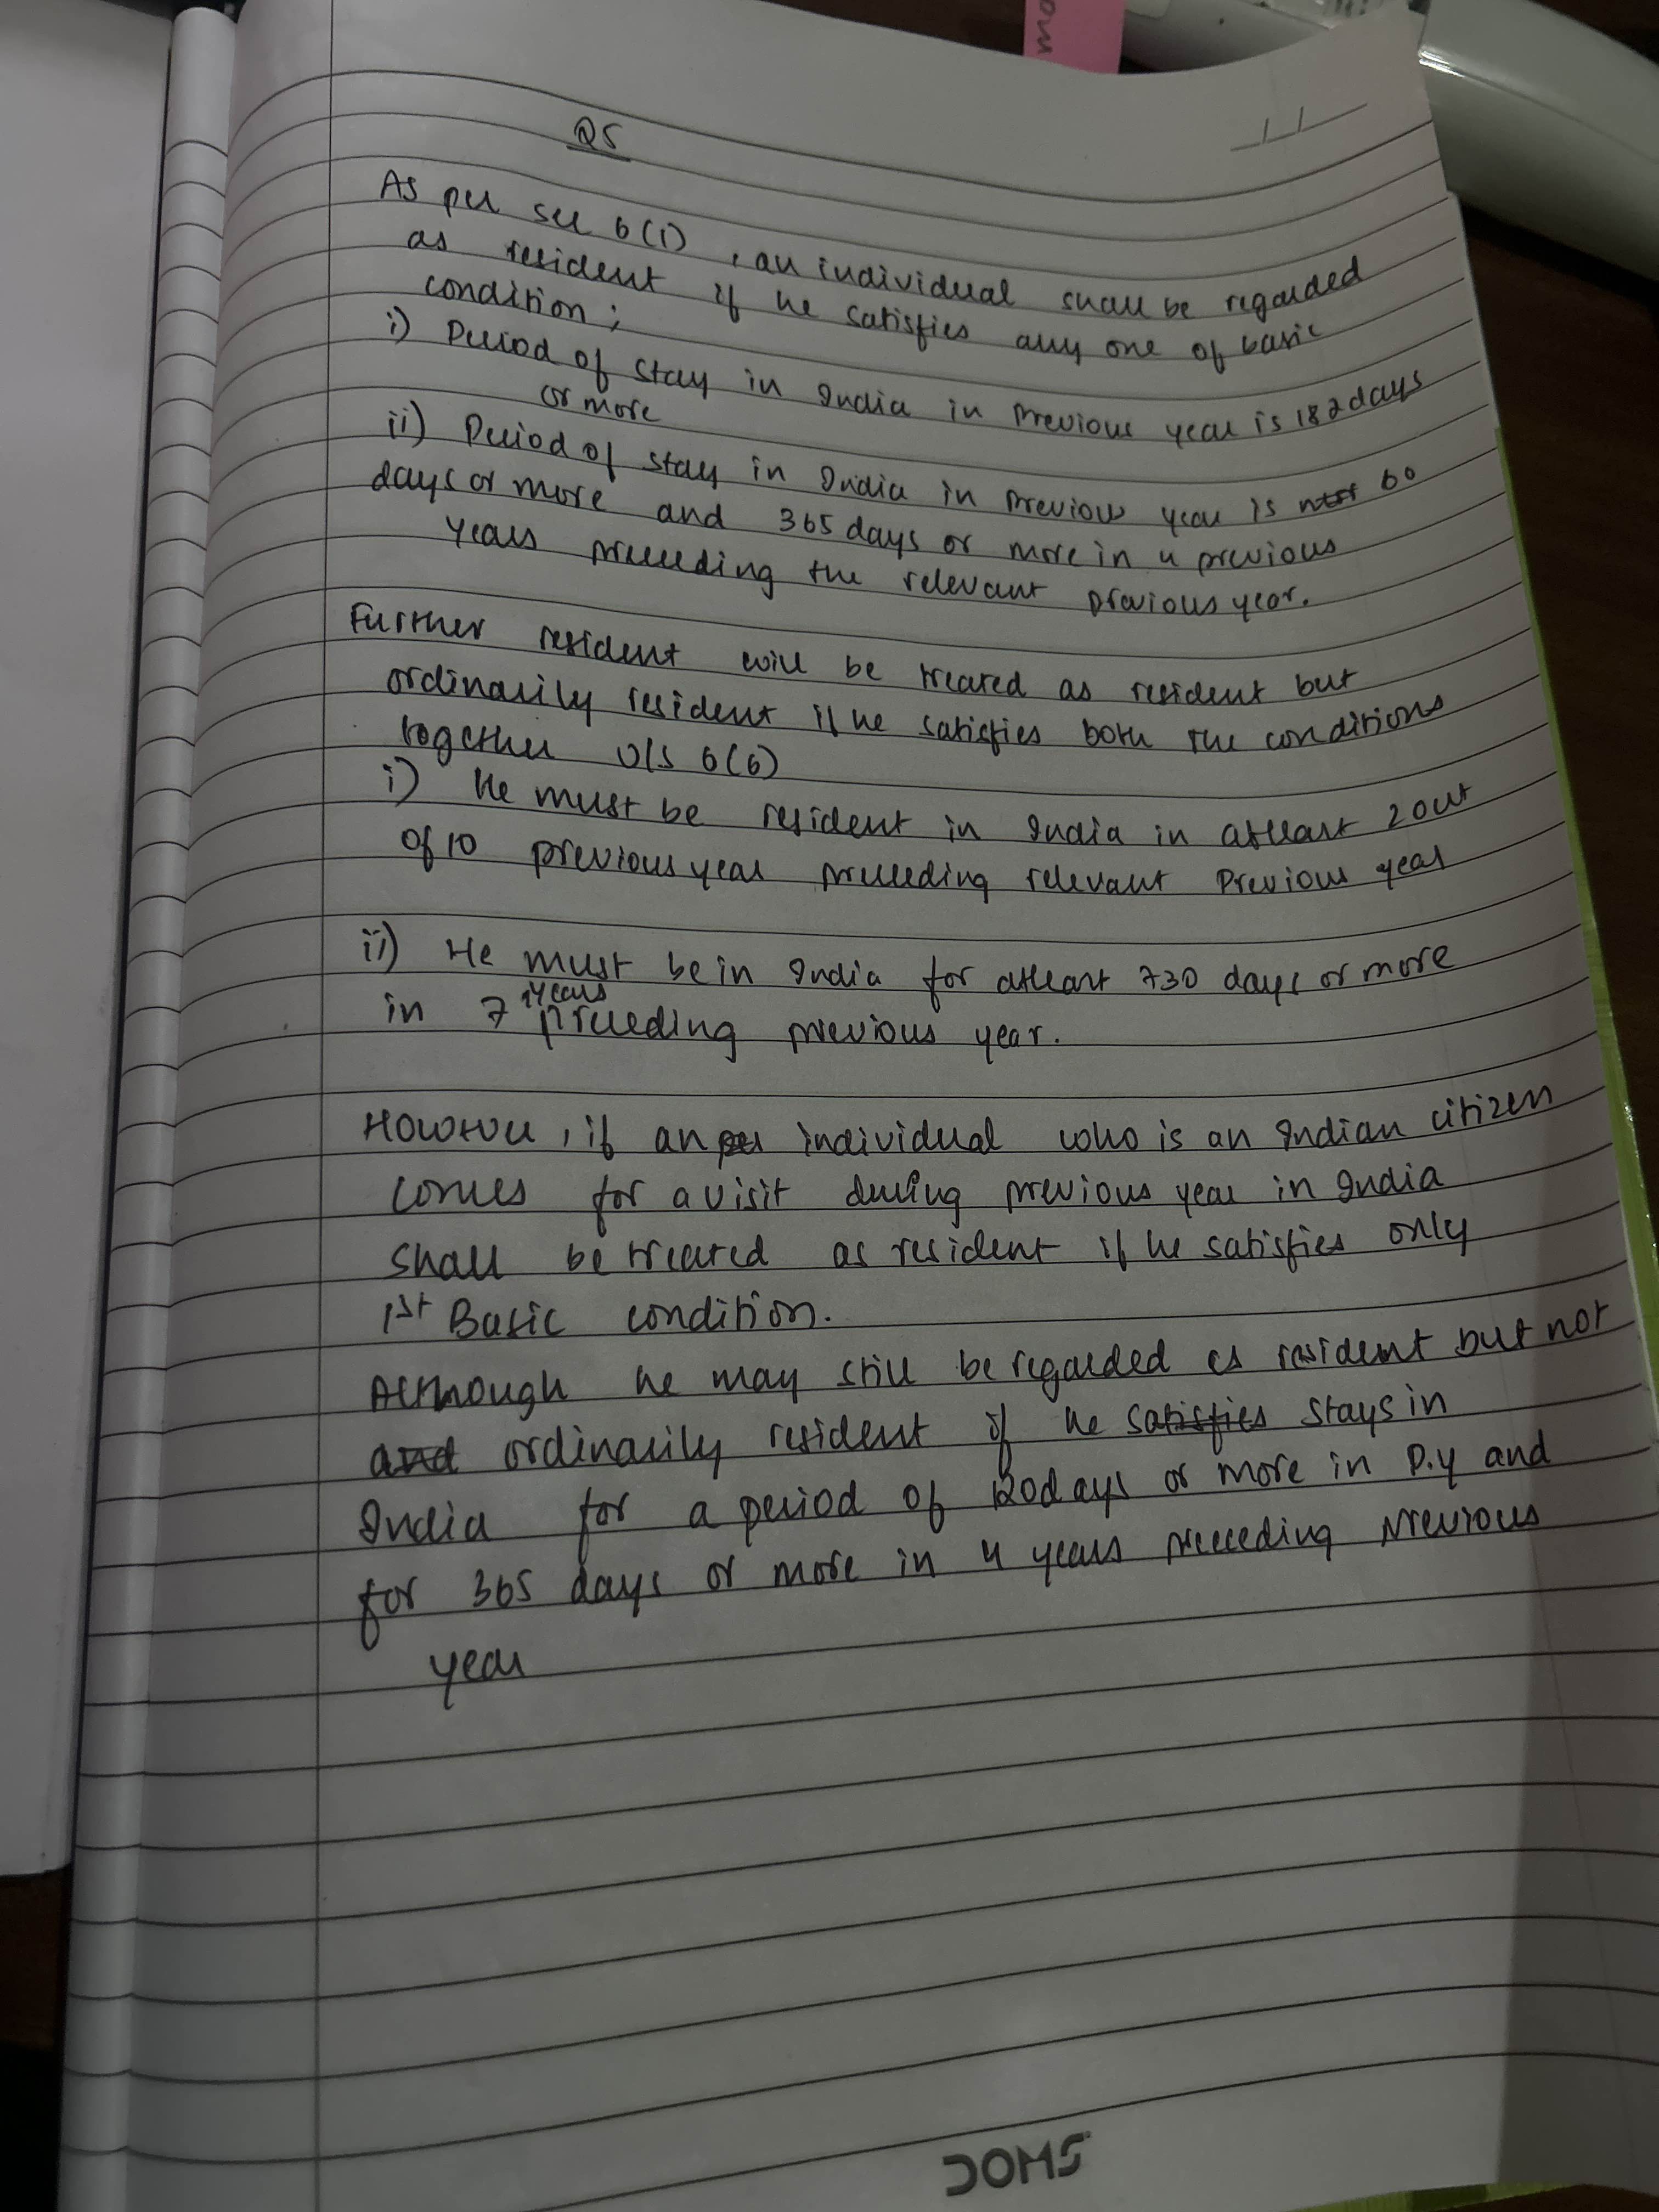 Q5
As per sec 6(1), an individual shall be regarded
as resident if he satisfies any one of basic
condition;
i) Period of stay in India in Previous year is 182 days
or more
ii) Period of stay in India in previous year is 60
days or more and 365 days or more in 4 previous
years preceeding the relevant previous year.
Further resident will be treated as resident but
ordinarily resident if he satisfies both the conditions
together U/S 6(6)
i) He must be resident in India in atleast 2 out
of 10 previous year preceeding relevant Previous year
ii) He must be in India for atleast 730 days or more
in 7 years preceeding previous year.
However, if an individual who is an Indian citizen
comes for a visit during previous year in India
shall be treated as resident if he satisfies only
1st Basic condition.
Although he may still be regarded as resident but not
and ordinarily resident if he satisfies stays in
India for a period of 120 days or more in P.Y and
for 365 days or more in 4 years preceeding previous
year
DOMS